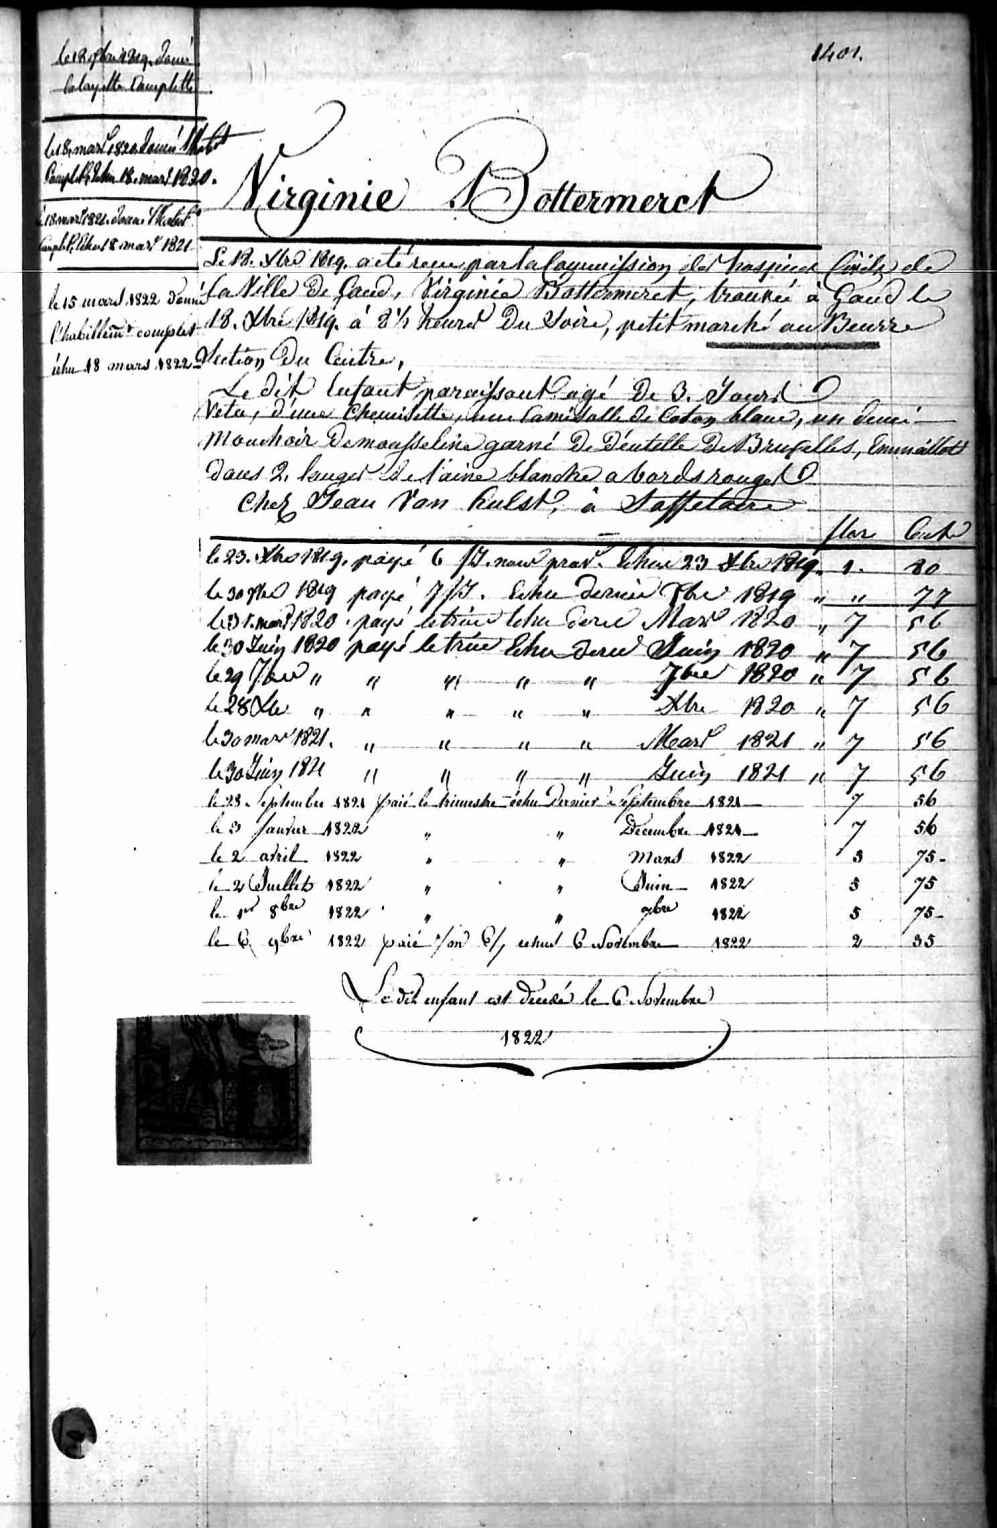 1401.
le 18 Xbre 1819. donné
la layette Complette
le 18. mars 1820. donné l'habt
Complt. Echu 18. mars 1820.
le 18 mars 1821. donné l'habt
Complt. Echu 18 mars 1821
le 15 mars 1822 donné
l'habillemt complet
échu 18 mars 1822
Virginie Bottermerct
Le 18. Xbre 1819. a été recue par la Commission des hospices Civils de
la Ville de Gand, Virginie Bottermerct, trouvée à Gand le
18. Xbre 1819. à 8½ heures du Soire, petit marché au Beurre
Section du Centre,
Le dit Enfant paraissant agé de 3. Jours
Vetu, d'une Chemisette, une Camisolle de Coton blanc, un demi
Mouchoir de mousseline garné de Dentelle de Bruxelles, Emmaillotté
dans 2. langes de laine blanche a bords rouges
Chez Jean Van hulst, à Saffelaere
flor Cents
le 23. Xbre 1819. payé 6 /J. nour prov. Echu 23 Xbre 1819. 1. 80
le 30 Xbre 1819 payé 7/J. Echu dernier Xbre 1819 " " 77
le 31. mars 1820. payé le trim Echu dernr Mars 1820 " 7 56
le 30 Juin 1820 payé le trim Echu dernr Juin 1820 " 7 56
le 29 7bre " " " " " 7bre 1820 " 7 56
Le 28 Xbre " " " " " Xbre 1820 " 7 56
le 30 mars 1821. " " " " Mars 1821 " 7 56
le 30 Juin 1821 " " " " Juin 1821 " 7 56
le 28 Septembre 1821 paié le trimestre échu dernier Septembre 1821 7 56
le 3 Janvier 1822 " " Decembre 1821 7 56
le 2 avril 1822 " " Mars 1822 5 75
le 2 Juillet 1822 " " Juin 1822 5 75
le 1er 8bre 1822 " " 7bre 1822 5 75
le 6 9bre 1822 paié échus 6 Novembre 1822 2 35
Le dit enfant est décédé le 6 Novembre
1822